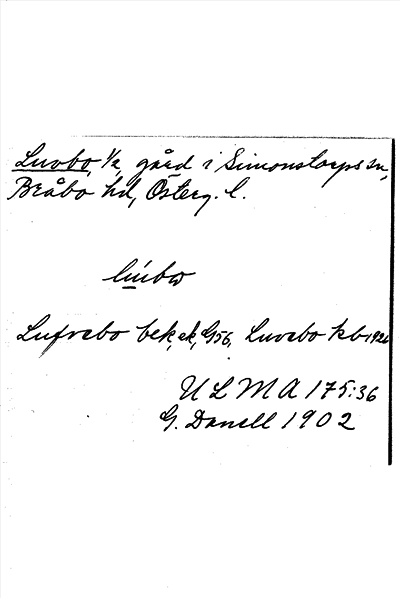 Luvbo, 1/2 gård i Simonstorps sn,
Bråbo hd, Österg. l.
Lufvebo bek, ek, G56, Luvebo kb 1920
ULMA 175:36
G. Danell 1902